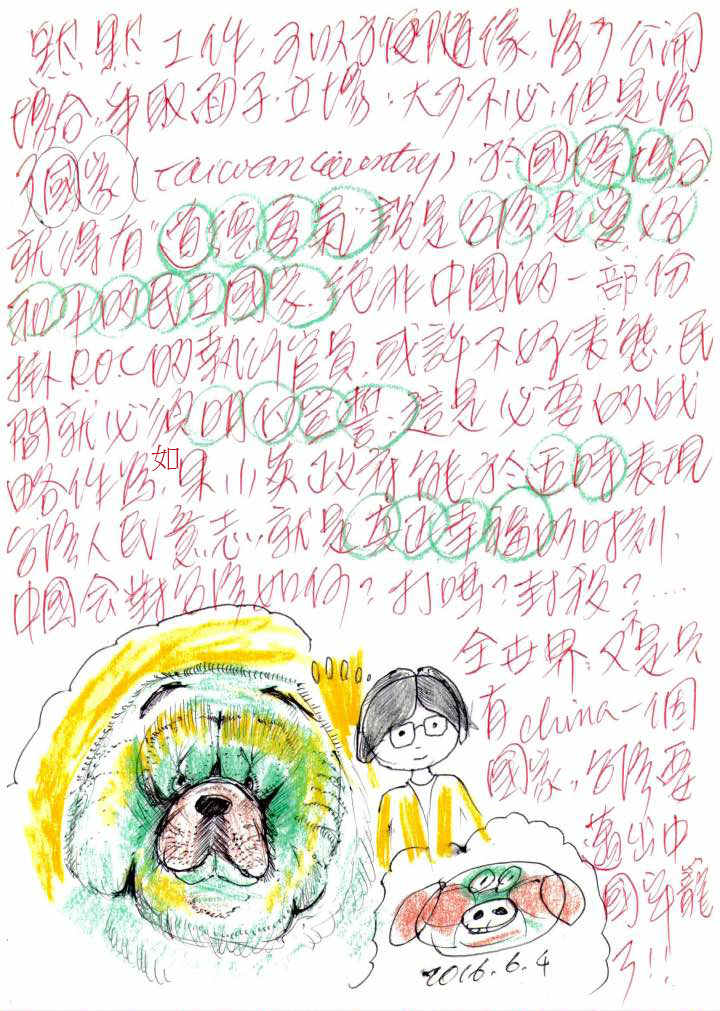 默默工作,可以方便隨緣,為了公開
場合,爭取面子、立場,大可不必,但是為
了國家(Taiwan Country),於國際場合
就得有"道德勇氣"說是台灣是愛好
和平的民主國家,絕非中國的一部份
掛R.O.C的執行官員,或許不好表態,民
間就必須明白宣誓,這是必要的战
略作為,如果小英政府能於五時表現
台灣人民意志,就是真正幸福的時刻、
中國会對台灣如何?打嗎?封殺?....
全世界又不是只
有china一個
國家,台灣要
邁出中
國牢籠
了!!
2016.6.4